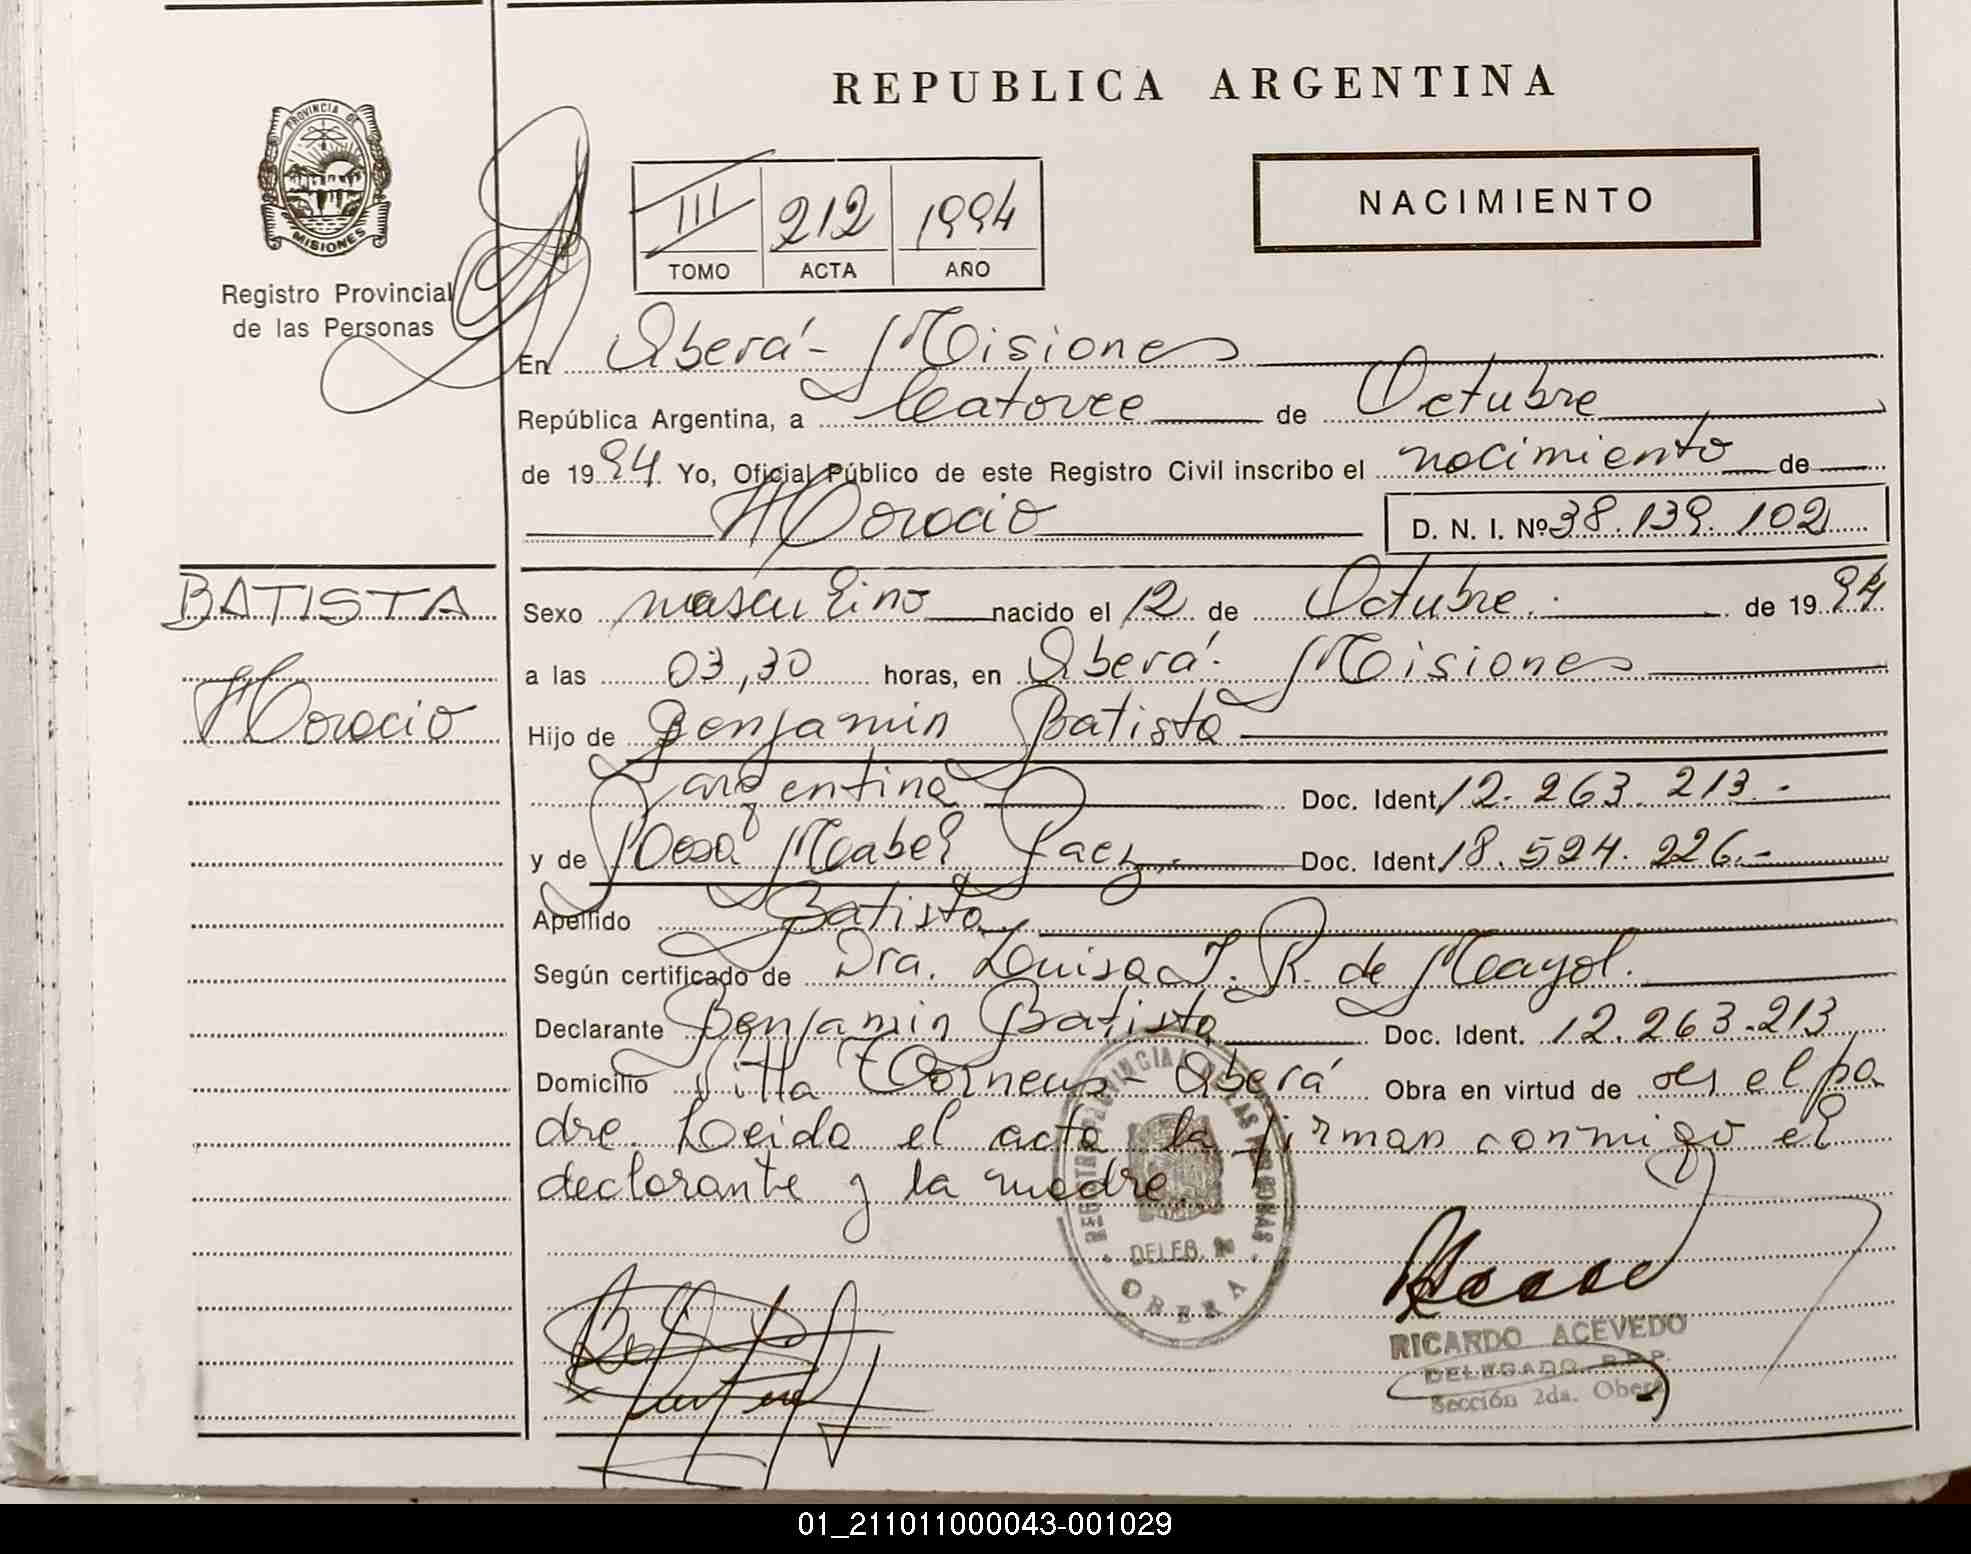 REPUBLICA ARGENTINA
PROVINCIA DE
MISIONES
Registro Provincial
de las Personas
NACIMIENTO
III 212 1994
TOMO ACTA AÑO
En Oberá - Misiones
República Argentina, a Catorce de Octubre
de 1994 Yo, Oficial Público de este Registro Civil inscribo el nacimiento de
Horacio D. N. I. Nº 38.139.102
BATISTA
Horacio
Sexo masculino nacido el 12 de Octubre. de 1994
a las 03,30 horas, en Oberá. Misiones
Hijo de Benjamin Batista
argentina Doc. Ident. 12.263.213.-
y de Rosa Mabel Paez.- Doc. Ident. 18.524.226.-
Apellido Batista
Según certificado de Dra. Luisa J. R. de Mayol.
Declarante Benjamin Batista Doc. Ident. 12.263.213
Domicilio Villa - Oberá Obra en virtud de ser el pa
dre. Leida el acta la firman conmigo el
declarante y la madre.
REGISTRO PROVINCIAL DE LAS PERSONAS
DELEG.
OBERA
RICARDO ACEVEDO
DELEGADO R.P.P.
Sección 2da. Oberá
01_211011000043-001029